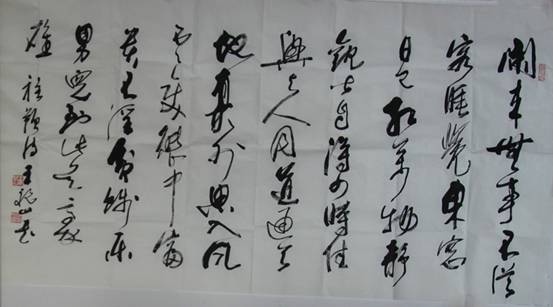 閑来無事不從
容睡覺東窗
日已紅萬物靜
觀皆自得四時佳
興與人同道通天
地有形外思入風
雲變態中富
貴不淫貧賤樂
男兒到此是豪
雄 程颢诗 王